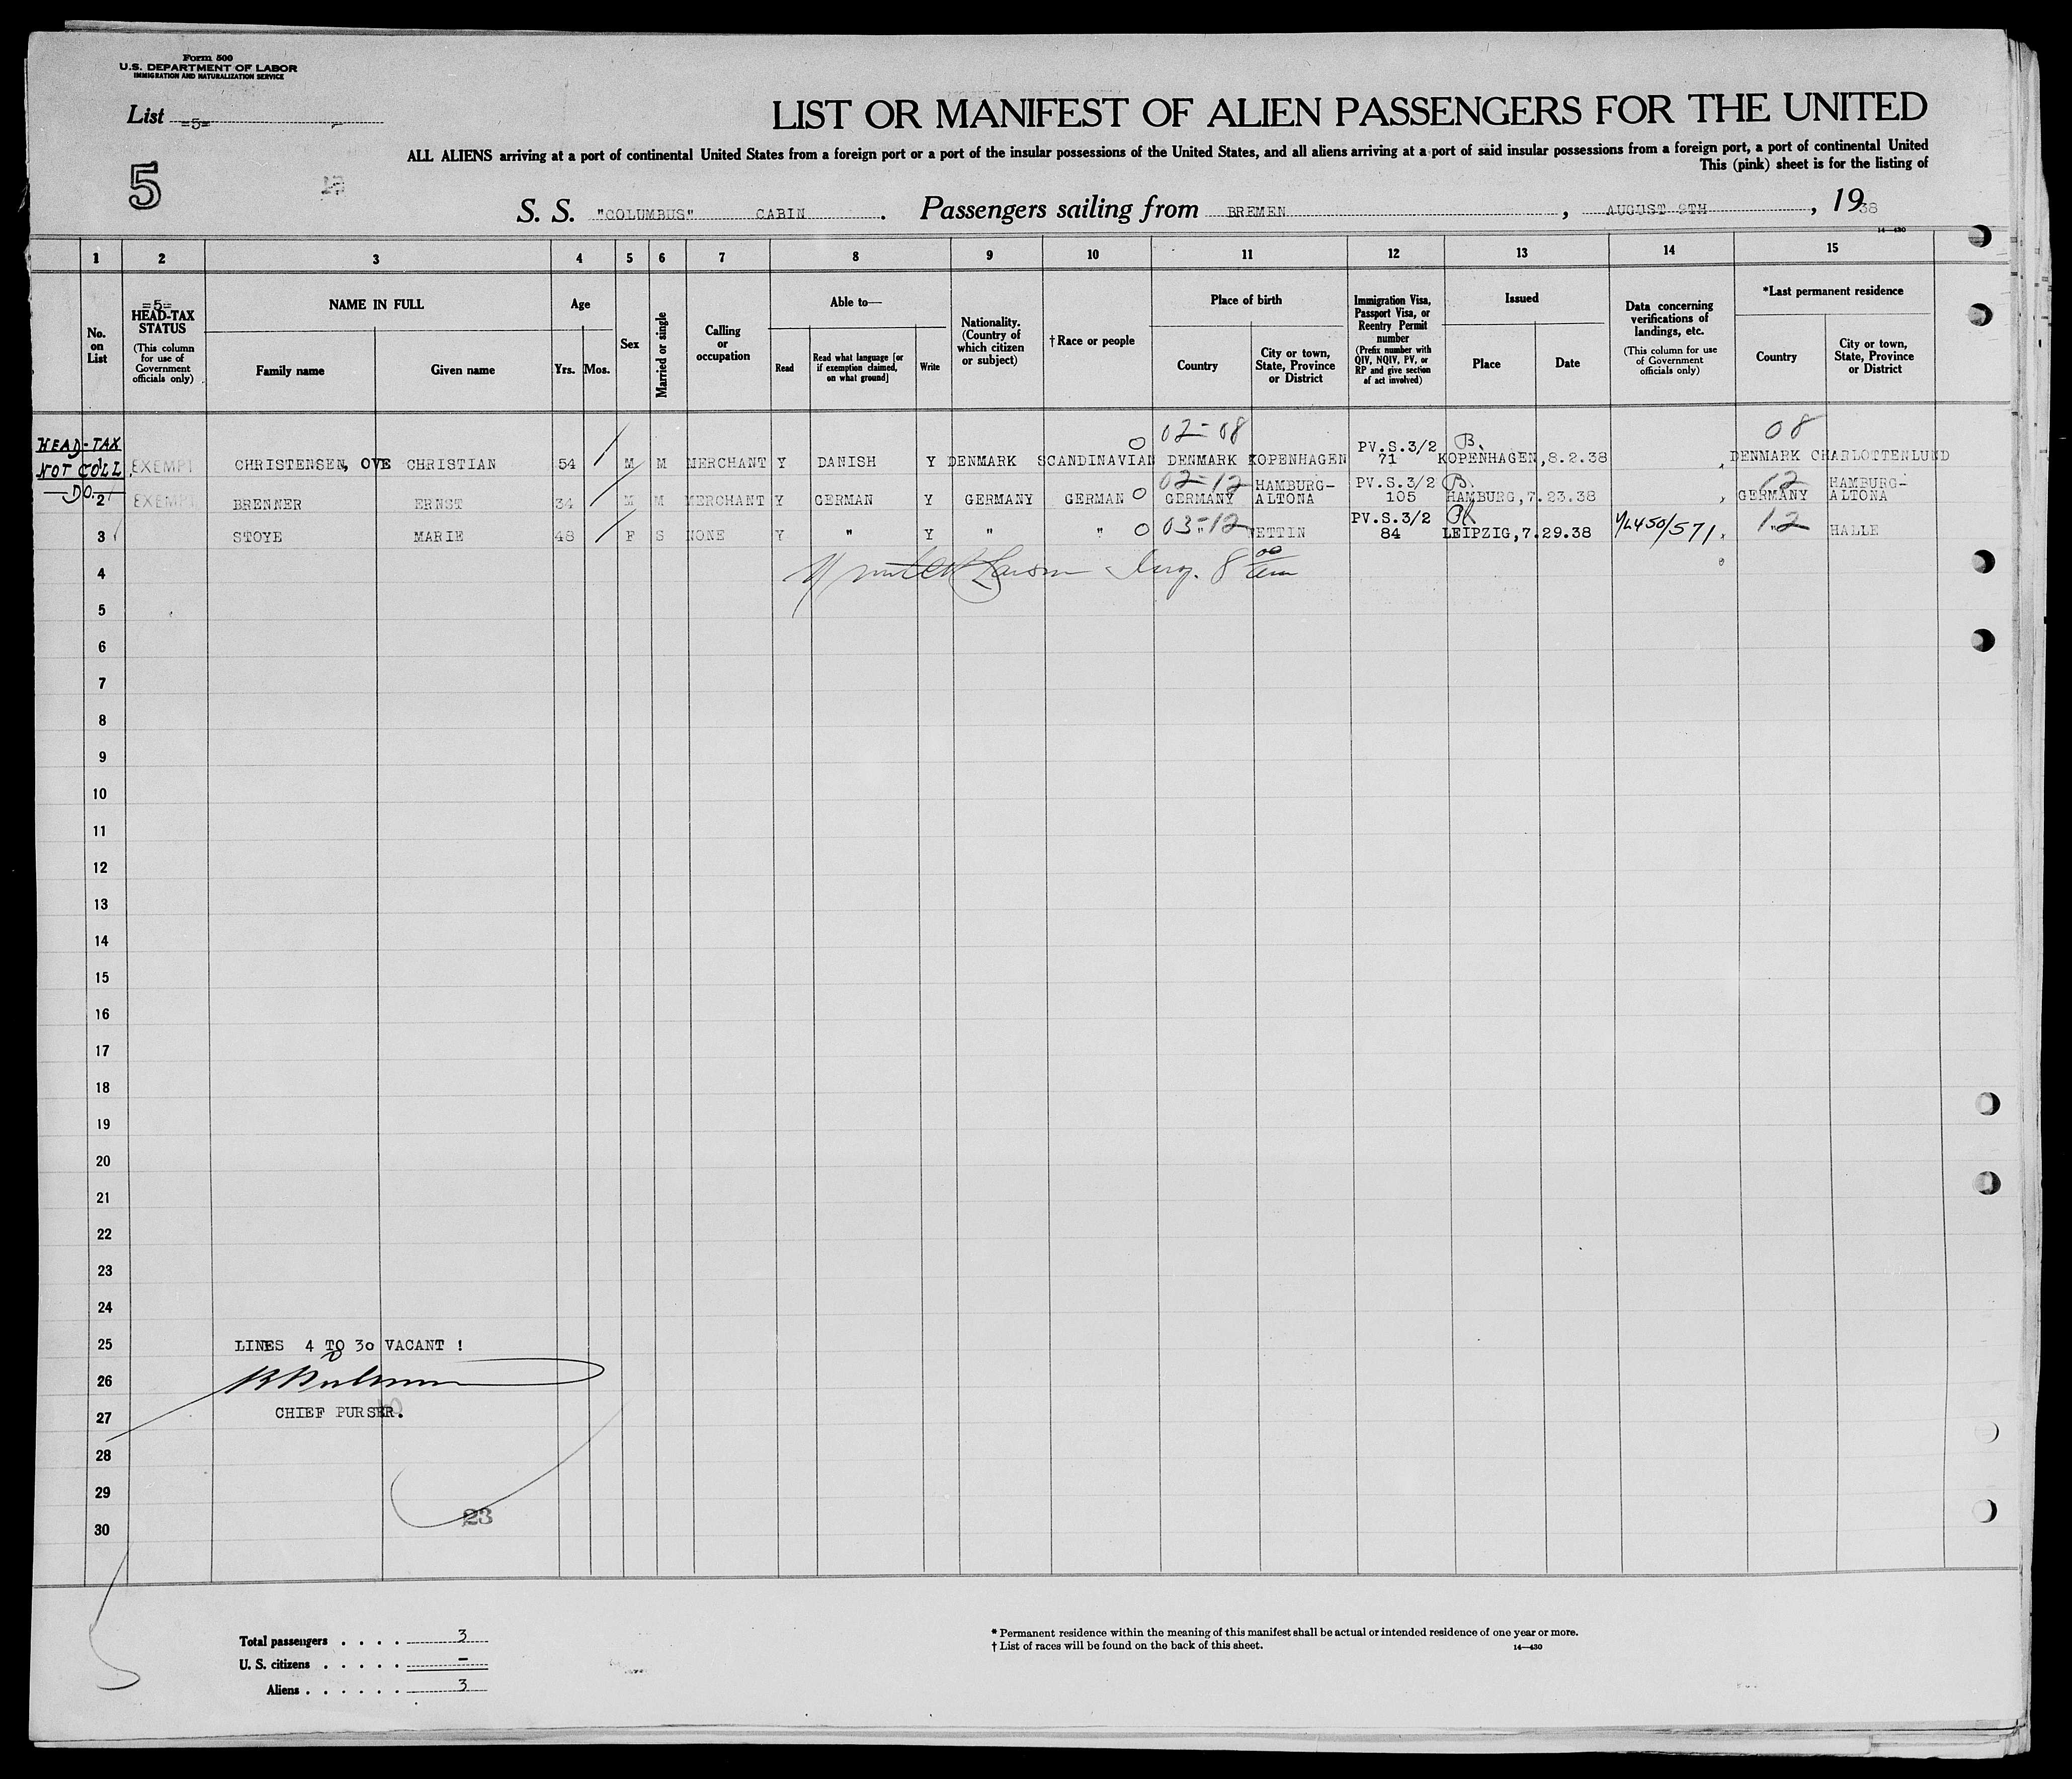 Form 500
U.S. DEPARTMENT OF LABOR
IMMIGRATION AND NATURALIZATION SERVICE
List =5=
LIST OR MANIFEST OF ALIEN PASSENGERS FOR THE UNITED
ALL ALIENS arriving at a port of continental United States from a foreign port or a port of the insular possessions of the United States, and all aliens arriving at a port of said insular possessions from a foreign port, a port of continental United
This (pink) sheet is for the listing of
5
S. S. "COLUMBUS" CABIN . Passengers sailing from BREMEN , AUGUST 9TH , 1938
14—430
1 2 3 4 5 6 7 8 9 10 11 12 13 14 15
No. on List
=5=
HEAD-TAX STATUS
(This column for use of Government officials only)
NAME IN FULL
Family name
Given name
Age
Yrs. Mos.
Sex
Married or single
Calling or occupation
Able to—
Read
Read what language [or if exemption claimed, on what ground]
Write
Nationality. (Country of which citizen or subject)
†Race or people
Place of birth
Country
City or town, State, Province or District
Immigration Visa, Passport Visa, or Reentry Permit number
(Prefix number with QIV, NQIV, PV, or RP and give section of act involved)
Issued
Place
Date
Data concerning verifications of landings, etc.
(This column for use of Government officials only)
*Last permanent residence
Country
City or town, State, Province or District
HEAD-TAX NOT COLL.
02-08
08
1 EXEMPT CHRISTENSEN, OVE CHRISTIAN 54 M M MERCHANT Y DANISH Y DENMARK SCANDINAVIAN O DENMARK KOPENHAGEN PV.S.3/2 71 B. KOPENHAGEN,8.2.38 DENMARK CHARLOTTENLUND
DO.
02-12
12
2 EXEMPT BRENNER ERNST 34 M M MERCHANT Y GERMAN Y GERMANY GERMAN O GERMANY HAMBURG-ALTONA PV.S.3/2 105 B. HAMBURG,7.23.38 GERMANY HAMBURG-ALTONA
3 STOYE MARIE 48 F S NONE Y " Y " " O 03-12 " WETTIN PV.S.3/2 84 LEIPZIG,7.29.38 450/571 12 " HALLE
4 8 00 am
5
6
7
8
9
10
11
12
13
14
15
16
17
18
19
20
21
22
23
24
25 LINES 4 TO 30 VACANT !
26
27 CHIEF PURSER.
28
29
23
30
Total passengers . . . . 3
U. S. citizens . . . . . –
Aliens . . . . . . 3
* Permanent residence within the meaning of this manifest shall be actual or intended residence of one year or more.
† List of races will be found on the back of this sheet.
14—430